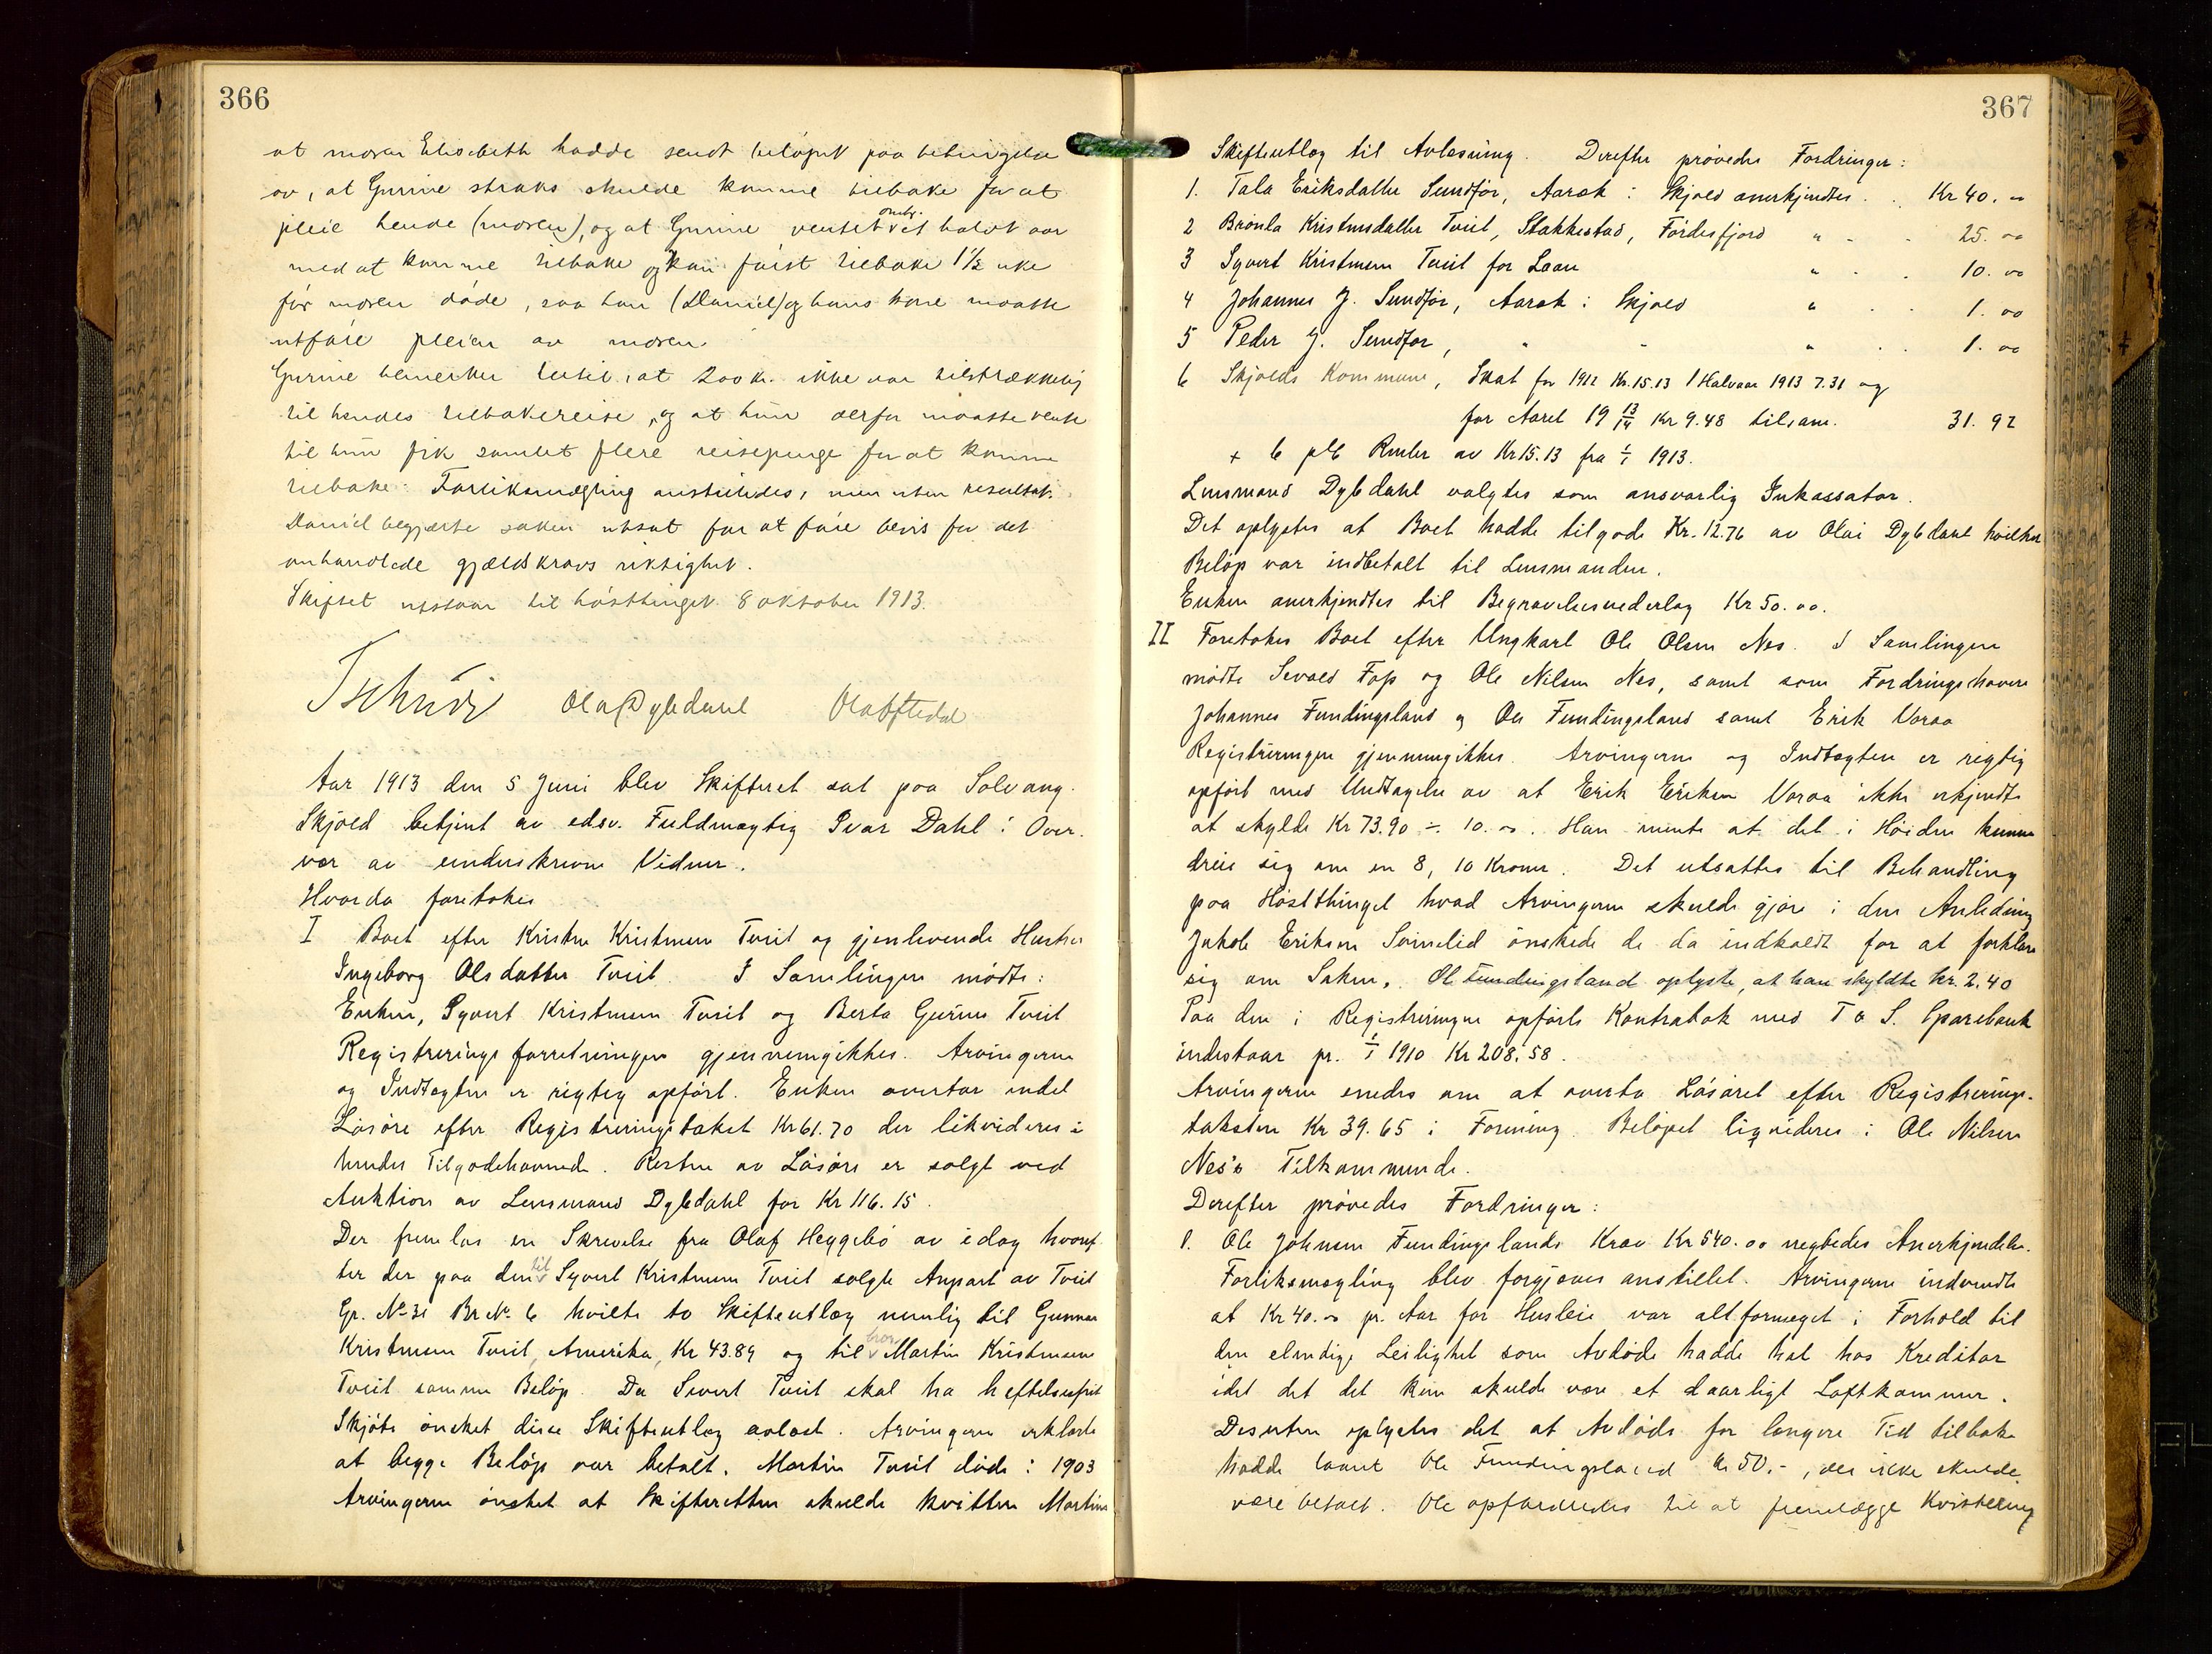 366
at moren Elisabeth hadde sendt beløpet paa betingelse
av, at Gurine straks skulde komme tilbake for at
pleie hende (moren), og at Gurine ventet omtr. et halvt aar
med at komme tilbake og kom først tilbake 1½ uke
før moren døde, saa han (Daniel) og hans kone maatte
utføre pleien av moren.
Gurine bemerker hertil, at 200 kr. ikke var tilstrækkelig
til hendes tilbakereise, og at hun derfor maatte vente
til hun fik samlet flere reisepenge for at komme
tilbake. Forliksmægling anstilledes, men uten resultat.
Daniel begjærte saken utsat for at føre bevis for det
omhandlede gjældskravs riktighet.
Skiftet utstaar til høsttinget 8 oktober 1913.
Tschudi Ola Dybdahl Ola Oftedal
Aar 1913 den 5 Juni blev Skifteret sat paa Solvang
Skjold betjent av edsv. Fuldmægtig Ivar Dahl i Over-
vær av underskrevne Vidner.
Hvorda foretokes
I Boet efter Kristen Kristensen Tveit og gjenlevende Hustru
Ingeborg Olsdatter Tveit. I Samlingen mødte:
Enken, Syvert Kristensen Tveit og Berta Gurine Tveit
Registreringsforretningen gjennemgikkes. Arvingerne
og Indtægten er rigtig opført. Enken overtar endel
Løsøre efter Registreringstakst Kr 61.70 der likvideres i
hendes Tilgodehavende. Resten av Løsøre er solgt ved
Auktion av Lensmand Dybdahl for Kr 116.15.
Der fremlas en Skrivelse fra Olaf Heggebø av idag hvoref-
ter der paa den til Syvert Kristensen Tveit solgte Anpart av Tveit
Gr. No 31 Br No. 6 hvilte to Skifteutlæg nemlig til Gunnar
Kristensen Tveit, Amerika, Kr 43.89 og til bror Martin Kristensen
Tveit samme Beløp. Da Sivert Tveit skal ha heftelsesfrit
Skjøte ønsket disse Skifteutlæg avløst. Arvingerne erklærte
at begge Beløp var betalt. Martin Tveit døde i 1903
Arvingerne ønsket at Skifteretten skulde kvittere Martins
367
Skifteutlæg til Avlæsning. Derefter prøvedes Fordringer:
1. Tala Eriksdatter Sundfør, Aarek i Skjold anerkjendtes . . Kr 40. oo
2 Brönla Kristensdatter Tveit, Stakkestad, Førdesfjord " - . 25. oo
3 Syvert Kristensen Tveit for Laan " . . 10. oo
4 Johannes J. Sundfør, Aarek i Skjold " . . 1. oo
5 Peder J. Sundfør, " - " . . 1. oo
6 Skjolds Kommune, Skat for 1912 Kr. 15.13 1 Halvaar 1913 7.31 og
for Aaret 19 13/14 Kr 9.48 tilsam. 31. 92
+ 6 pct Renter av Kr 15.13 fra 1/1 1913.
Lensmand Dybdahl valgtes som ansvarlig Inkassator.
Det oplystes at Boet hadde tilgode Kr. 12.76 av Olai Dybdahl hvilket
Beløp var indbetalt til Lensmanden.
Enken anerkjendtes til Begravelsesvederlag Kr 50. oo.
II Foretokes Boet efter Ungkarl Ole Olsen Nes. I Samlingen
mødte Sevald Fop og Ole Nilsen Nes, samt som Fordringshavere
Johannes Fundingsland og Ole Fundingsland samt Erik Voraa
Registreringen gjennemgikkes. Arvingerne og Indtægten er rigtig
opført med Undtagelse av at Erik Eriksen Voraa ikke erkjendte
at skylde Kr 73.90 ÷ 10. oo. Han mente at det i Høiden kunne
dreie sig om en 8, 10 Kroner. Det utsattes til Behandling
paa Høstthinget hvad Arvingerne skulde gjøre i den Anledning
Jakob Eriksen Svinelid ønskede de da indkaldt for at forklare
sig om Saken. Ole Fundingsland oplyste, at han skyldte kr. 2.40
Paa den i Registreringen opførte Kontrabok med T & S. Sparebank
indestaar pr. 1/1 1910 Kr 208.58.
Arvingerne enedes om at overta Løsøret efter Registrerings-
taksten Kr 39.65 i Forening. Beløpet liqvideres i Ole Nilsen
Nes's Tilkommende.
Derefter prøvedes Fordringer:
1. Ole Johnsen Fundingslands Krav Kr 540. oo negtedes Anerkjendelse.
Forliksmægling blev forgjæves anstillet. Arvingerne indvendte
at Kr 40. oo pr. Aar for Husleie var altformeget i Forhold til
den elendige Leilighet som Avdøde hadde hat hos Kreditor
idet det kun skulde være et daarligt Loftkammer.
Desuten oplystes det at Avdøde for længere Tid tilbake
hadde laant Ole Fundingsland kr 50.-, der ikke skulde
være betalt. Ole opfordredes til at fremlægge Kvittering